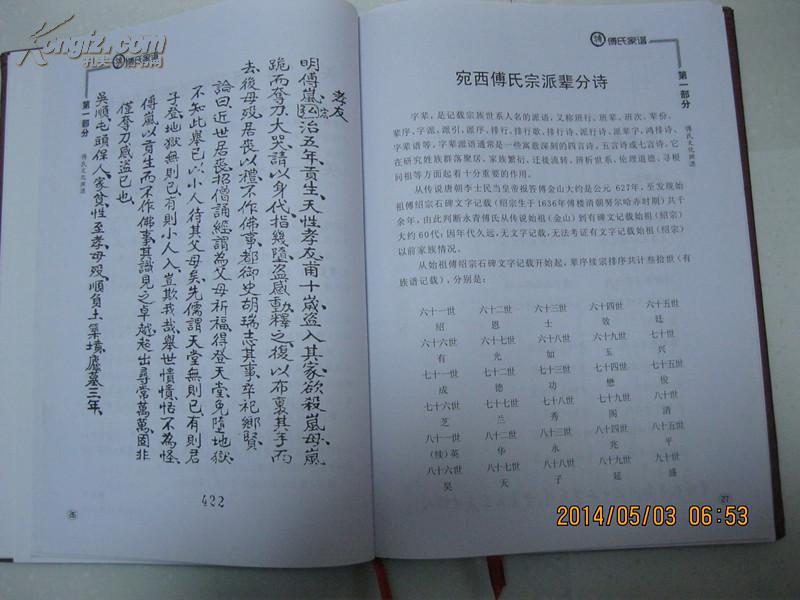 Kongfz.com
孔夫子旧书网
傅氏家谱
第一部分
傅氏文化渊源
孝友
明傅嵐弘治五年貢生天性孝友甫十歲盜入其家欲殺嵐母嵐
跪而奪刀大哭請以身代指幾墮盜感動釋之復以布裹其手而
去後母歿居喪以禮不作佛事都御史胡瑞志其事卒祀鄉賢
論曰近世居喪招僧誦經謂為父母祈福得登天堂免墮地獄
不知此舉已以小人待其父母矣先儒謂天堂無則已有則君
子登地獄無則已有則小人入豈欺我哉舉世憒憒恬不為怪
傅嵐以貢生而不作佛事其識見之卓越超出尋常萬萬固非
僅奪刀感盜已也
吳順屯頭保人家貧性至孝母歿順負土築墳廬墓三年
422
傅氏家谱
第一部分
傅氏文化渊源
宛西傅氏宗派辈分诗
字辈，是记载宗族世系人名的派语，又称班行、班辈、班次、辈份、
辈序、字派，派引，派序、排行、排行歌、排行诗、派行诗、派辈字，鸿排诗、
字辈谱等。字辈派语通常是一些寓意深刻的四言诗、五言诗或七言诗。它
在研究姓族群落聚居、家族繁衍、迁徙流转、辨析世系、伦理道德、寻根
问祖等方面起着十分重要的作用。
从传说唐朝李士民当皇帝报答傅金山大约是公元 627年，至发现始
祖傅绍宗石碑文字记载（绍宗生于1636年傅楼清朝努尔哈赤时期）共千
余年，由此判断永青傅氏从传说始祖（金山）到有碑文记载始祖（绍宗）
大约60代；因年代久远，无文字记载，无法考证有文字记载始祖（绍宗）
以前家族情况。
从始祖傅绍宗石碑文字记载开始起，辈序续宗排序共计叁拾世（有
族谱记载），分别是：
六十一世 六十二世 六十三世 六十四世 六十五世
绍 恩 士 效 廷
六十六世 六十七世 六十八世 六十九世 七十世
有 光 如 玉 兴
七十一世 七十二世 七十三世 七十四世 七十五世
成 德 功 懋 俊
七十六世 七十七世 七十八世 七十九世 八十世
芝 兰 秀 阁 清
八十一世 八十二世 八十三世 八十四世 八十五世
（续）英 华 永 兆 平
八十六世 八十七世 八十八世 八十九世 九十世
昊 天 子 延 盛
27
2014/05/03 06:53